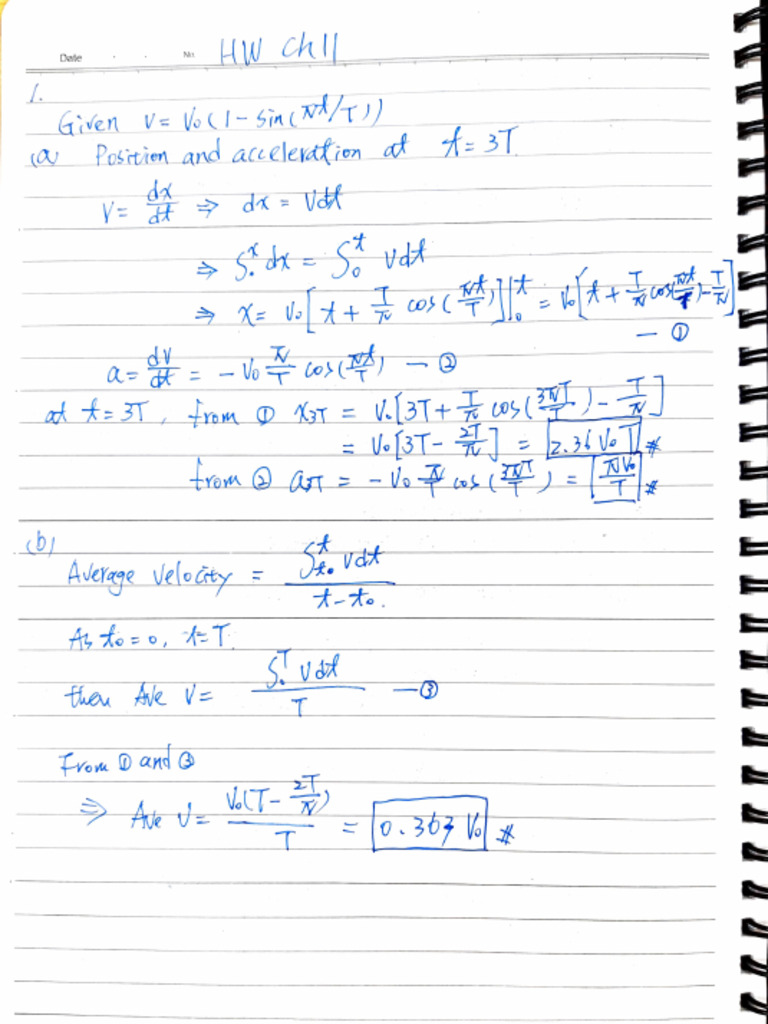 Date . . No. HW Ch11
1.
Given v = v₀(1 - sin(πt/T))
(a) Position and acceleration at t = 3T
v = dx/dt ⇒ dx = vdt
⇒ ∫₀ˣ dx = ∫₀ᵗ vdt
⇒ x = v₀[t + T/π cos(πt/T)]|₀ᵗ = v₀[t + T/π cos(πt/T) - T/π]
— ①
a = dv/dt = -v₀ π/T cos(πt/T) — ②
at t = 3T, from ① x3T = v₀[3T + T/π cos(3πT/T) - T/π]
= v₀[3T - 2T/π] = 2.36 v₀T #
from ② a3T = -v₀ π/T cos(3πT/T) = πv₀/T #
(b)
Average velocity = ∫ₜ₀ᵗ vdt / t - t₀.
As t₀ = 0, t = T.
then Ave v = ∫₀ᵀ vdt / T — ③
From ① and ③
⇒ Ave v = v₀(T - 2T/π) / T = 0.363 v₀ #